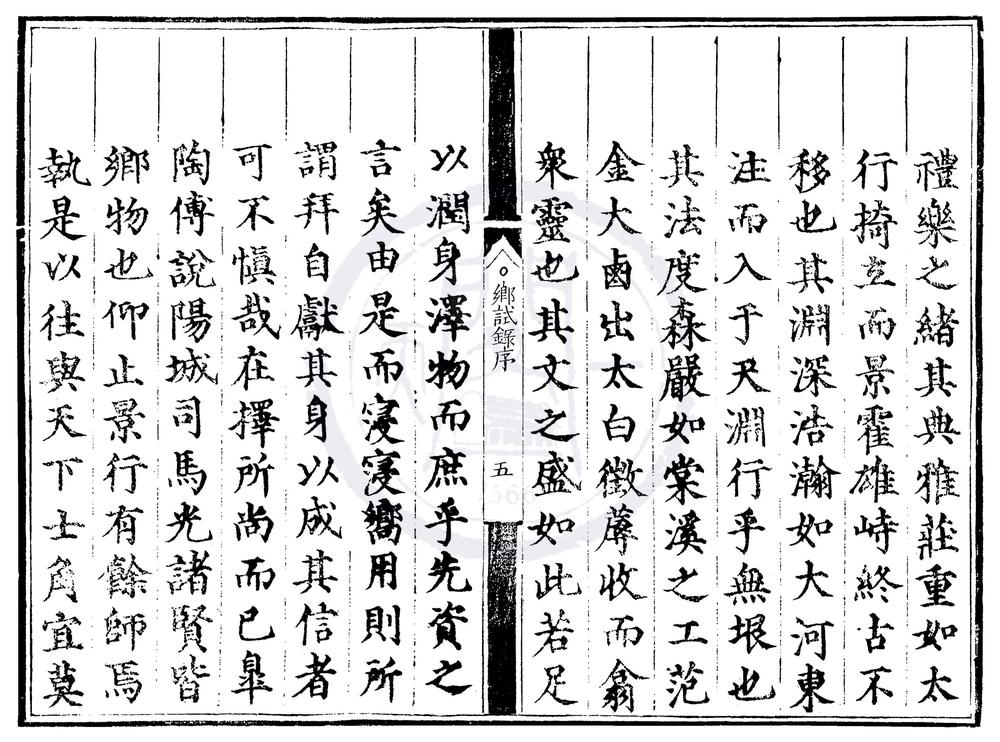 禮樂之緒其典雅莊重如太
行掎立而景霍雄峙終古不
移也其淵深浩瀚如大河東
注而入于天淵行乎無垠也
其法度森嚴如棠溪之工范
金大鹵出太白徵蓐收而翕
衆靈也其文之盛如此若足
鄉試錄序
五
以潤身澤物而庶乎先資之
言矣由是而寖寖嚮用則所
謂拜自獻其身以成其信者
可不慎哉在擇所尚而已臯
陶傅說陽城司馬光諸賢皆
鄉物也仰止景行有餘師焉
執是以往與天下士角宜莫